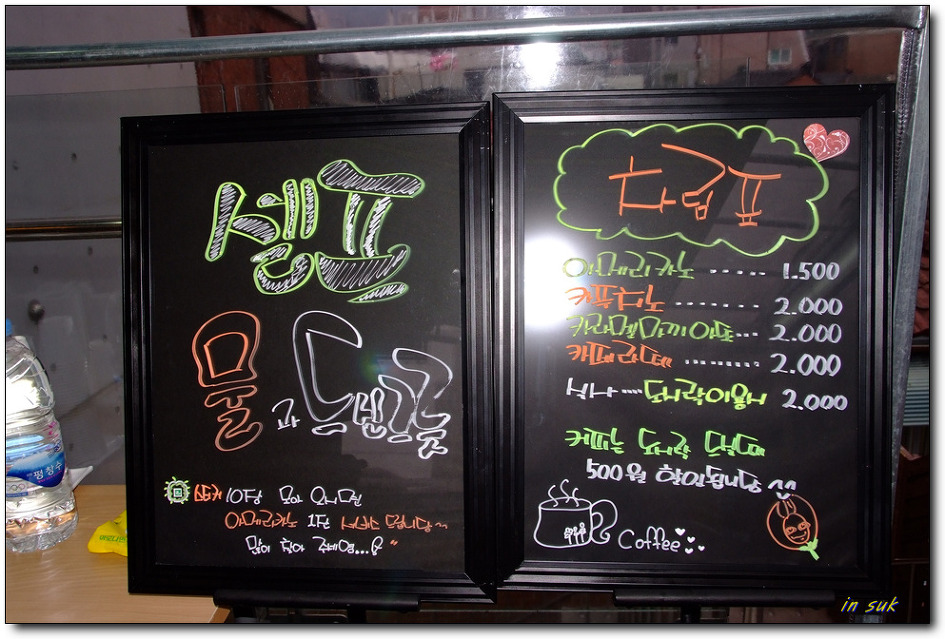 셀프
물
과
10장 모아 오시면
아메리카노 1잔 서비스 드립니다~~
많이 찾아 주세요...!
차림표
아메리카노 ...... 1.500
카푸치노 ........ 2.000
카라멜마끼아또... 2.000
카페라떼 ......... 2.000
식사 .... 도시락이용시 2.000
커피는 도시락 드실때
500원 할인됩니다 ^^
Coffee
평창수
in suk